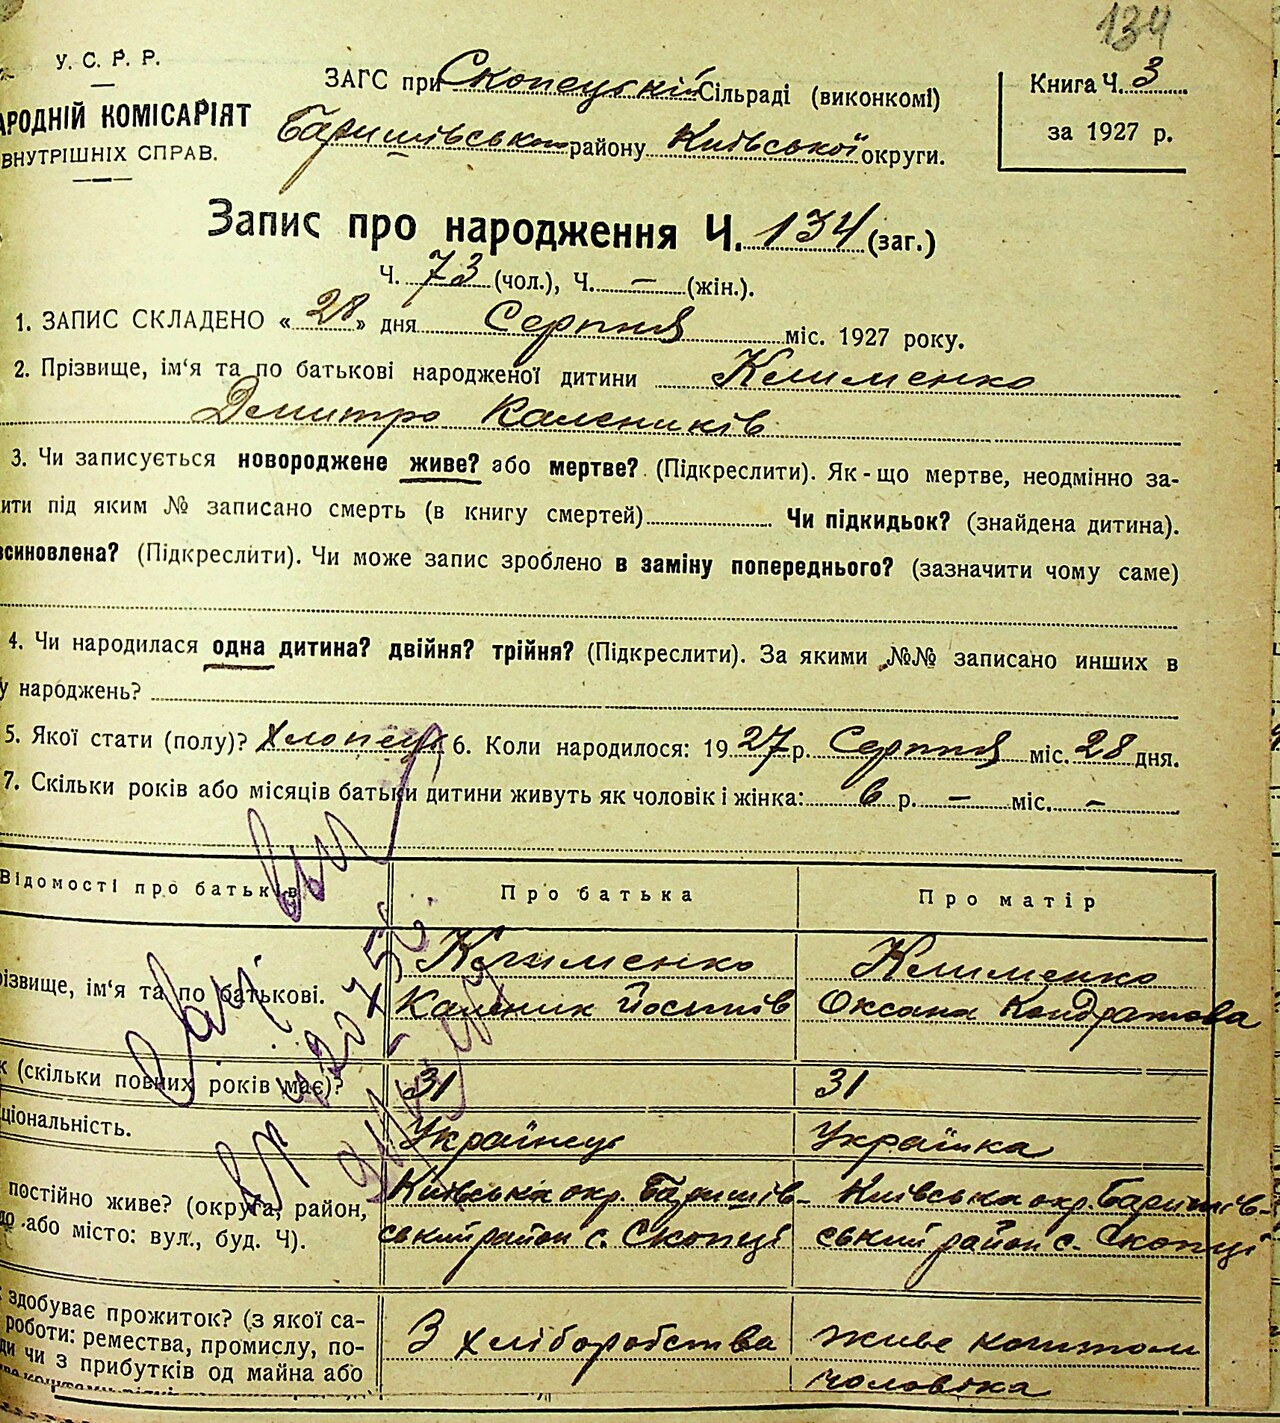 134
У. С. Р. Р.
АРОДНІЙ КОМІСАРІЯТ
ВНУТРІШНІХ СПРАВ.
ЗАГС при Скопецькій Сільраді (виконкомі)
Баришівського району Київської округи.
Книга Ч. 3
за 1927 р.
Запис про народження Ч. 134 (заг.)
Ч. 73 (чол.), Ч. — (жін.).
1. ЗАПИС СКЛАДЕНО « 28 » дня Серпня міс. 1927 року.
2. Прізвище, ім'я та по батькові народженої дитини Клименко
Дмитро Калеників
3. Чи записується новороджене живе? або мертве? (Підкреслити). Як-що мертве, неодмінно за-
ити під яким № записано смерть (в книгу смертей) Чи підкидьок? (знайдена дитина).
всиновлена? (Підкреслити). Чи може запис зроблено в заміну попереднього? (зазначити чому саме)
4. Чи народилася одна дитина? двійня? трійня? (Підкреслити). За якими №№ записано инших в
у народжень?
5. Якої стати (полу)? Хлопець 6. Коли народилось: 1927 р. Серпня міс. 28 дня.
7. Скільки років або місяців батьки дитини живуть як чоловік і жінка: 6 р. — міс. —
Відомості про батьків Про батька Про матір
різвище, ім'я та по батькові.
Клименко Клименко
Каленик Йосипів Оксана Кондратова
к (скільки повних років має)? 31 31
ціональність. Українець Українка
постійно живе? (округа, район,
або місто: вул., буд. Ч).
Київська окр. Баришів- Київська окр. Баришів-
ський район с. Скопці ський район с. Скопці
здобуває прожиток? (з якої са-
роботи: ремества, промислу, по-
ди чи з прибутків од майна або
З хліборобства живе коштом
чоловіка